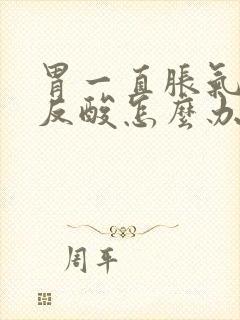 胃一直脹氣
反酸怎麼办
周平